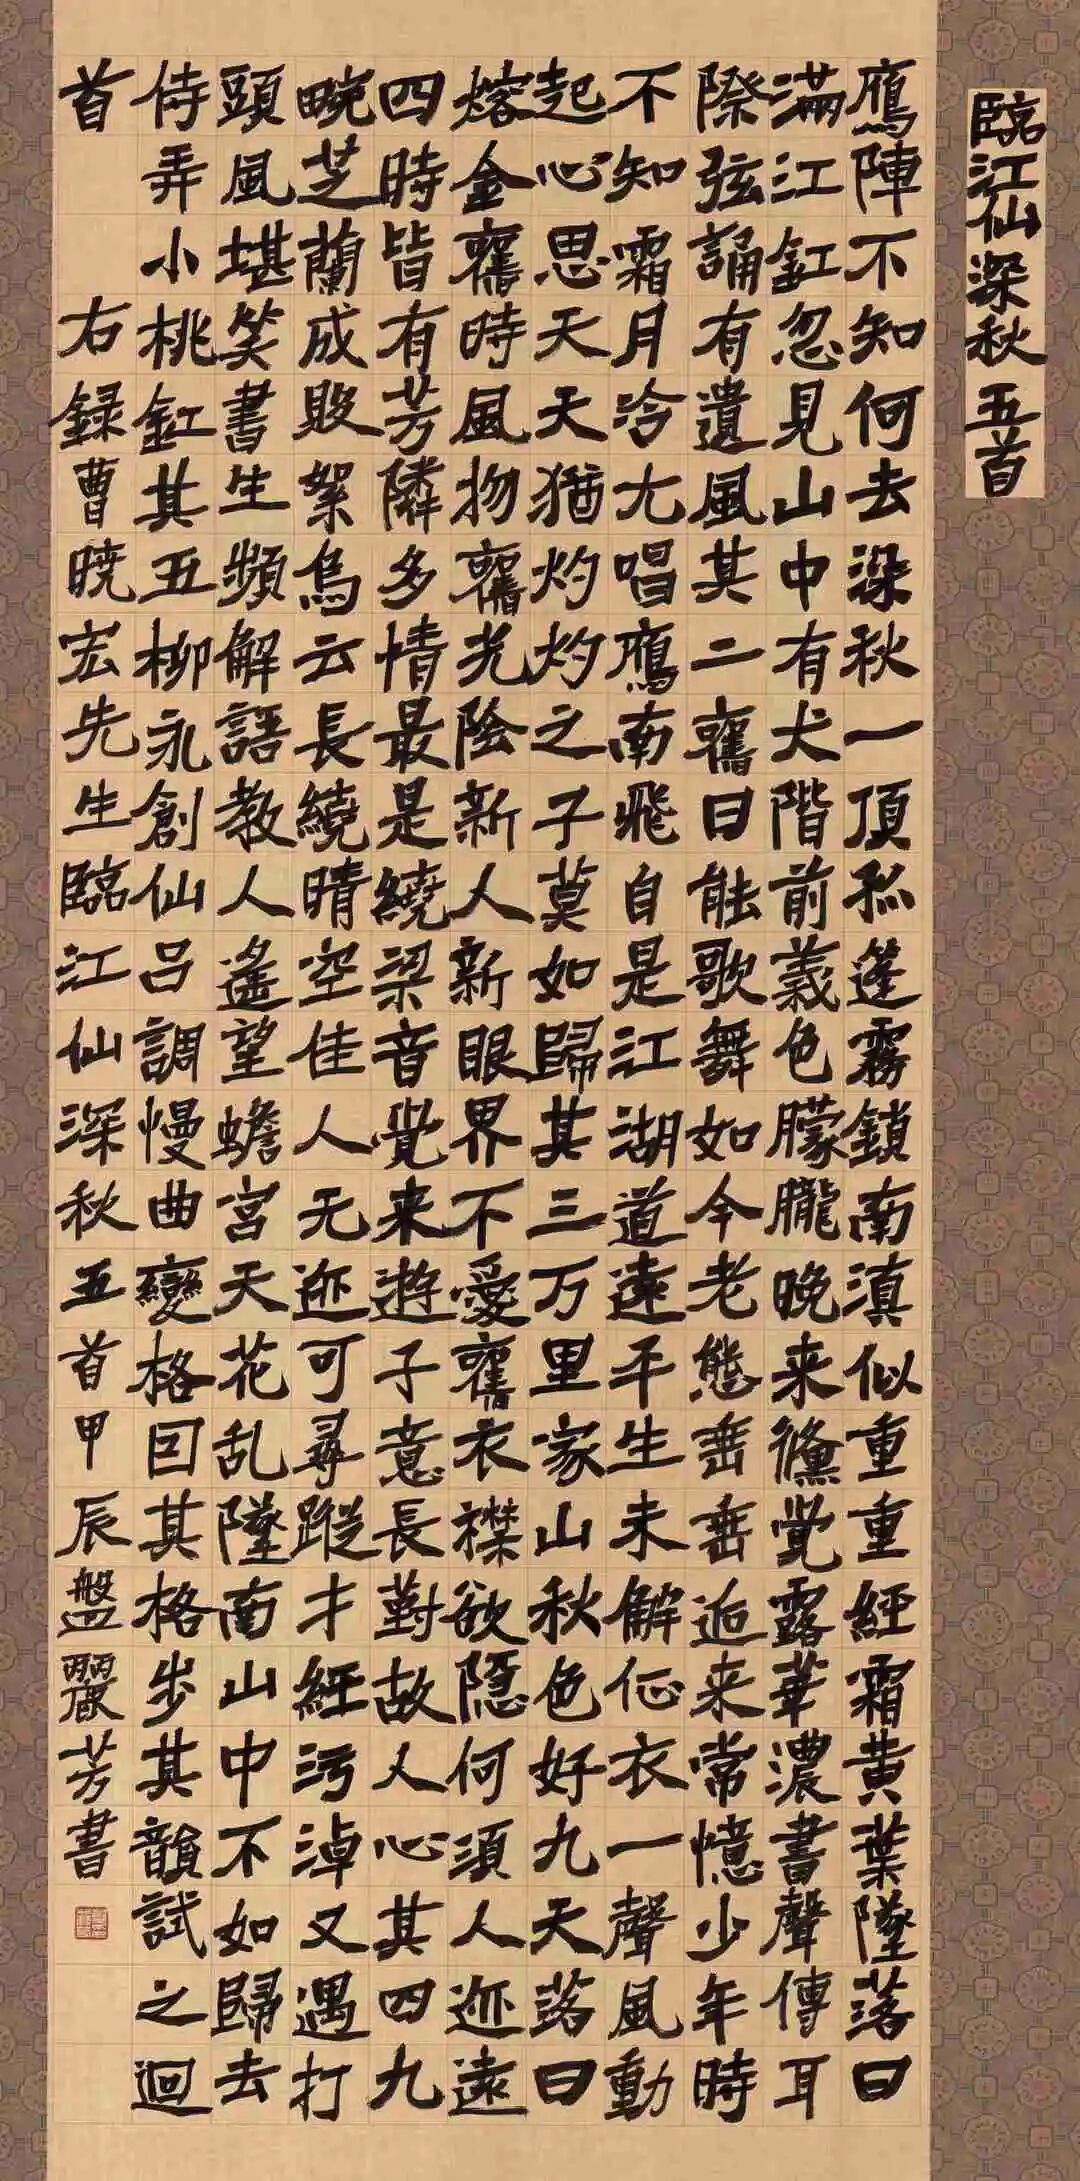 臨江仙深秋五首
鴈陣不知何去深秋一頂孤篷霧鎖南滇似重重經霜黃葉墜落日
滿江紅忽見山中有犬階前義色朦朧晚来微覺露華濃書聲傳耳
際弦誦有遺風其二舊日能歌舞如今老態垂垂近来常憶少年時
不知霜月冷尤唱鴈南飛自是江湖道遠平生未解征衣一聲風動
起心思天天猶灼灼之子莫如歸其三万里家山秋色好九天落日
熔金舊時風物舊光陰新人新眼界不愛舊衣襟欲隱何須人迹遠
四時皆有芳隣多情最是繞梁音覺来遊子意長對故人心其四九
畹芝蘭成敗絮烏云長繞晴空佳人无迹可尋蹤才經污淖又遇打
頭風堪笑書生頻解語教人遙望蟾宮天花乱墜南山中不如歸去
侍弄小桃紅其五柳永創仙呂調慢曲變格回其格步其韻試之迴
首 右録曹暁宏先生臨江仙深秋五首甲辰盤麗芳書